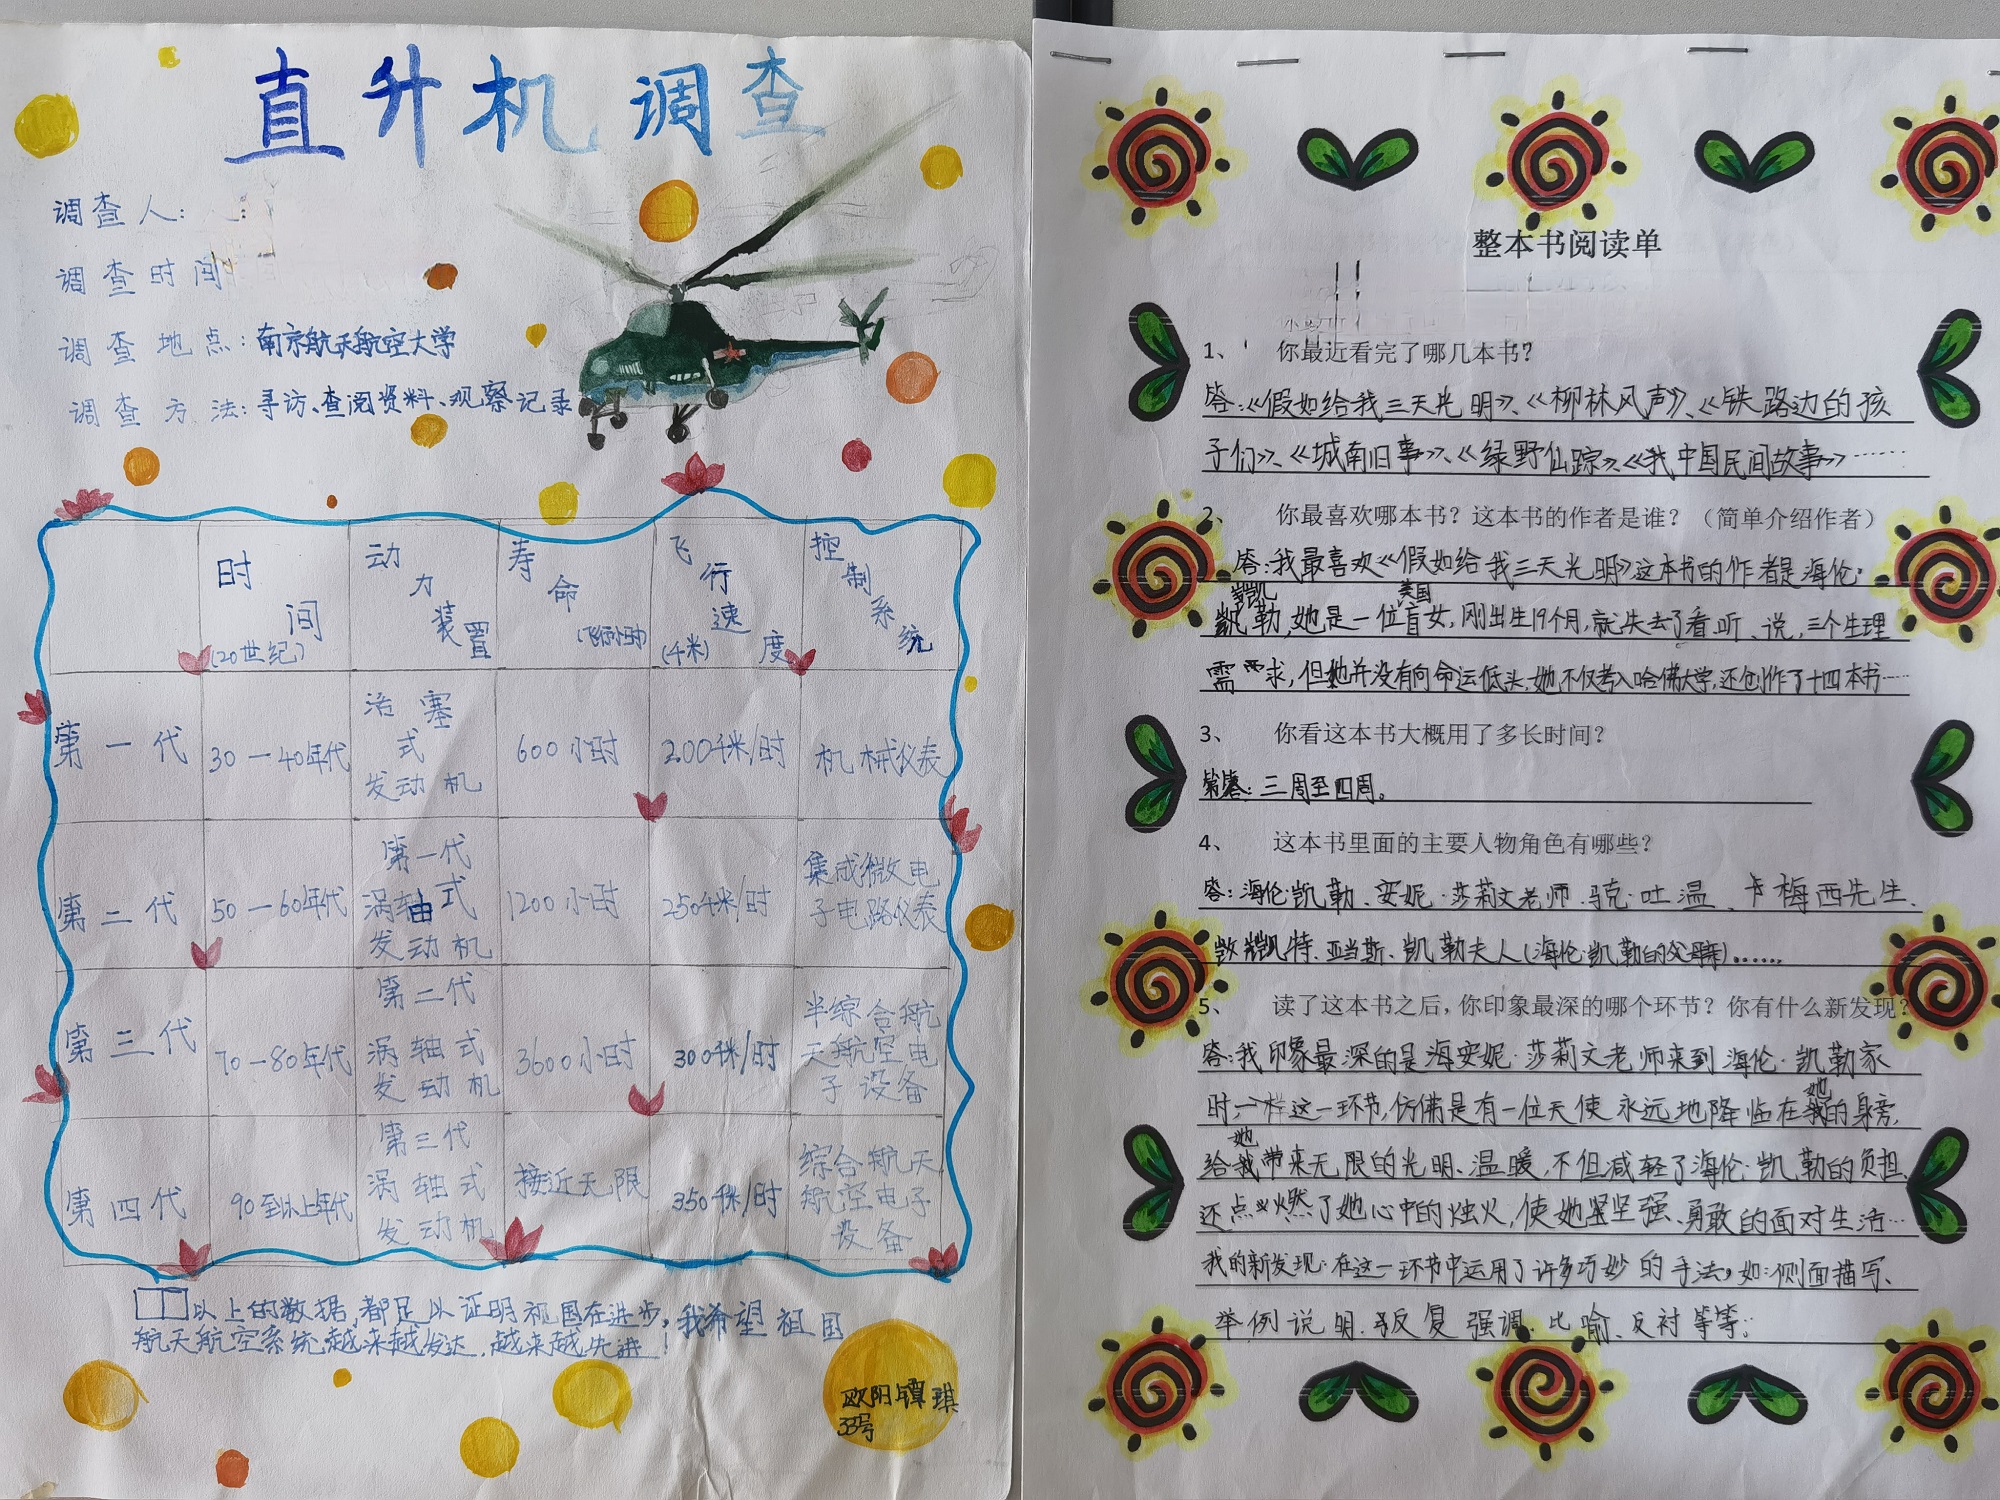 直升机调查
调查人:
调查时间
调查地点:南京航天航空大学
调查方法:寻访、查阅资料、观察记录
时间(20世纪) 动力装置 寿命(飞行小时) 飞行速度(千米) 控制系统
第一代 30一40年代 活塞式发动机 600小时 200千米/时 机械仪表
第二代 50一60年代 第一代涡轴式发动机 1200小时 250千米/时 集成微电子电路仪表
第三代 70一80年代 第二代涡轴式发动机 3600小时 300千米/时 半综合航天航空电子设备
第四代 90至以上年代 第三代涡轴式发动机 接近无限 350千米/时 综合航天航空电子设备
以上的数据,都足以证明祖国在进步,我希望祖国
航天航空系统越来越发达,越来越先进!
欧阳镡琪
33号
整本书阅读单
1、 你最近看完了哪几本书?
答:《假如给我三天光明》、《柳林风声》、《铁路边的孩
子们》、《城南旧事》、《绿野仙踪》、《我中国民间故事》……
2、 你最喜欢哪本书?这本书的作者是谁?(简单介绍作者)
答:我最喜欢《假如给我三天光明》这本书的作者是海伦·
凯勒,她是一位美国盲女,刚出生19个月,就失去了看、听、说,三个生理
需求,但她并没有向命运低头,她不仅考入哈佛大学,还创作了十四本书……
3、 你看这本书大概用了多长时间?
答:三周至四周。
4、 这本书里面的主要人物角色有哪些?
答:海伦·凯勒、安妮·莎莉文老师、马克·吐温、卡梅西先生、
凯特、亚当斯、凯勒夫人(海伦·凯勒的父母亲)……
5、 读了这本书之后,你印象最深的哪个环节?你有什么新发现?
答:我印象最深的是安妮·莎莉文老师来到海伦·凯勒家
时,这一环节,仿佛是有一位天使永远地降临在她的身旁,
给她带来无限的光明、温暖,不但减轻了海伦·凯勒的负担,
还点燃了她心中的烛火,使她坚强、勇敢的面对生活…
我的新发现:在这一环节中运用了许多巧妙的手法,如:侧面描写、
举例说明、反复强调、比喻、反衬等等。